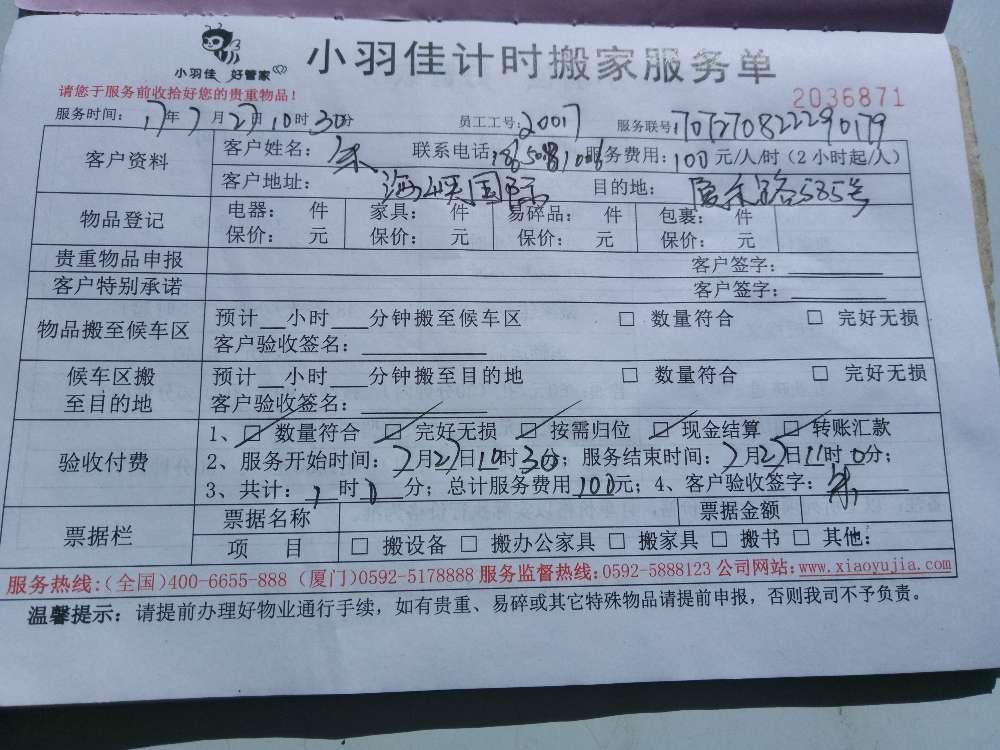 小羽佳 好管家
小羽佳计时搬家服务单
请您于服务前收拾好您的贵重物品！
2036871
服务时间：17年7月27日10时30分 员工工号：20017 服务联号：
客户资料 客户姓名：朱 联系电话： 服务费用：100元/人/时（2小时起/人）
客户地址：海峡国际 目的地：厦禾路585号
物品登记 电器： 件 家具： 件 易碎品： 件 包裹： 件
保价： 元 保价： 元 保价： 元 保价： 元
贵重物品申报 客户签字：
客户特别承诺 客户签字：
物品搬至候车区 预计__小时___分钟搬至候车区 □ 数量符合 □ 完好无损
客户验收签名：
候车区搬至目的地 预计__小时___分钟搬至目的地 □ 数量符合 □ 完好无损
客户验收签名：
验收付费 1、☑ 数量符合 ☑ 完好无损 ☑ 按需归位 ☑ 现金结算 ☑ 转账汇款
2、服务开始时间：7月27日10时30分；服务结束时间：7月27日11时0分；
3、共计： 时 分；总计服务费用100元；4、客户验收签字：朱
票据栏 票据名称 票据金额
项 目 □ 搬设备 □ 搬办公家具 □ 搬家具 □ 搬书 □ 其他：
服务热线：（全国）400-6655-888（厦门）0592-5178888 服务监督热线：0592-5888123 公司网站：www.xiaoyujia.com
温馨提示：请提前办理好物业通行手续，如有贵重、易碎或其它特殊物品请提前申报，否则我司不予负责。